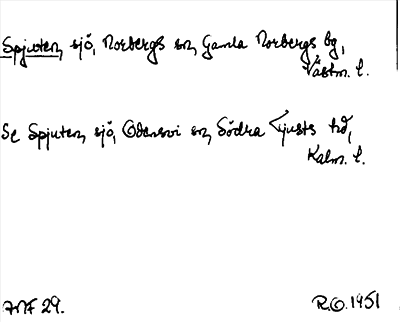 Spjuten, sjö, Norbergs sn, Gamla Norbergs bg,
Västm. l.
Se Spjuten, sjö, Odensvi sn, Södra Tjusts hd,
Kalm. l.
NF 29.
R.O. 1951